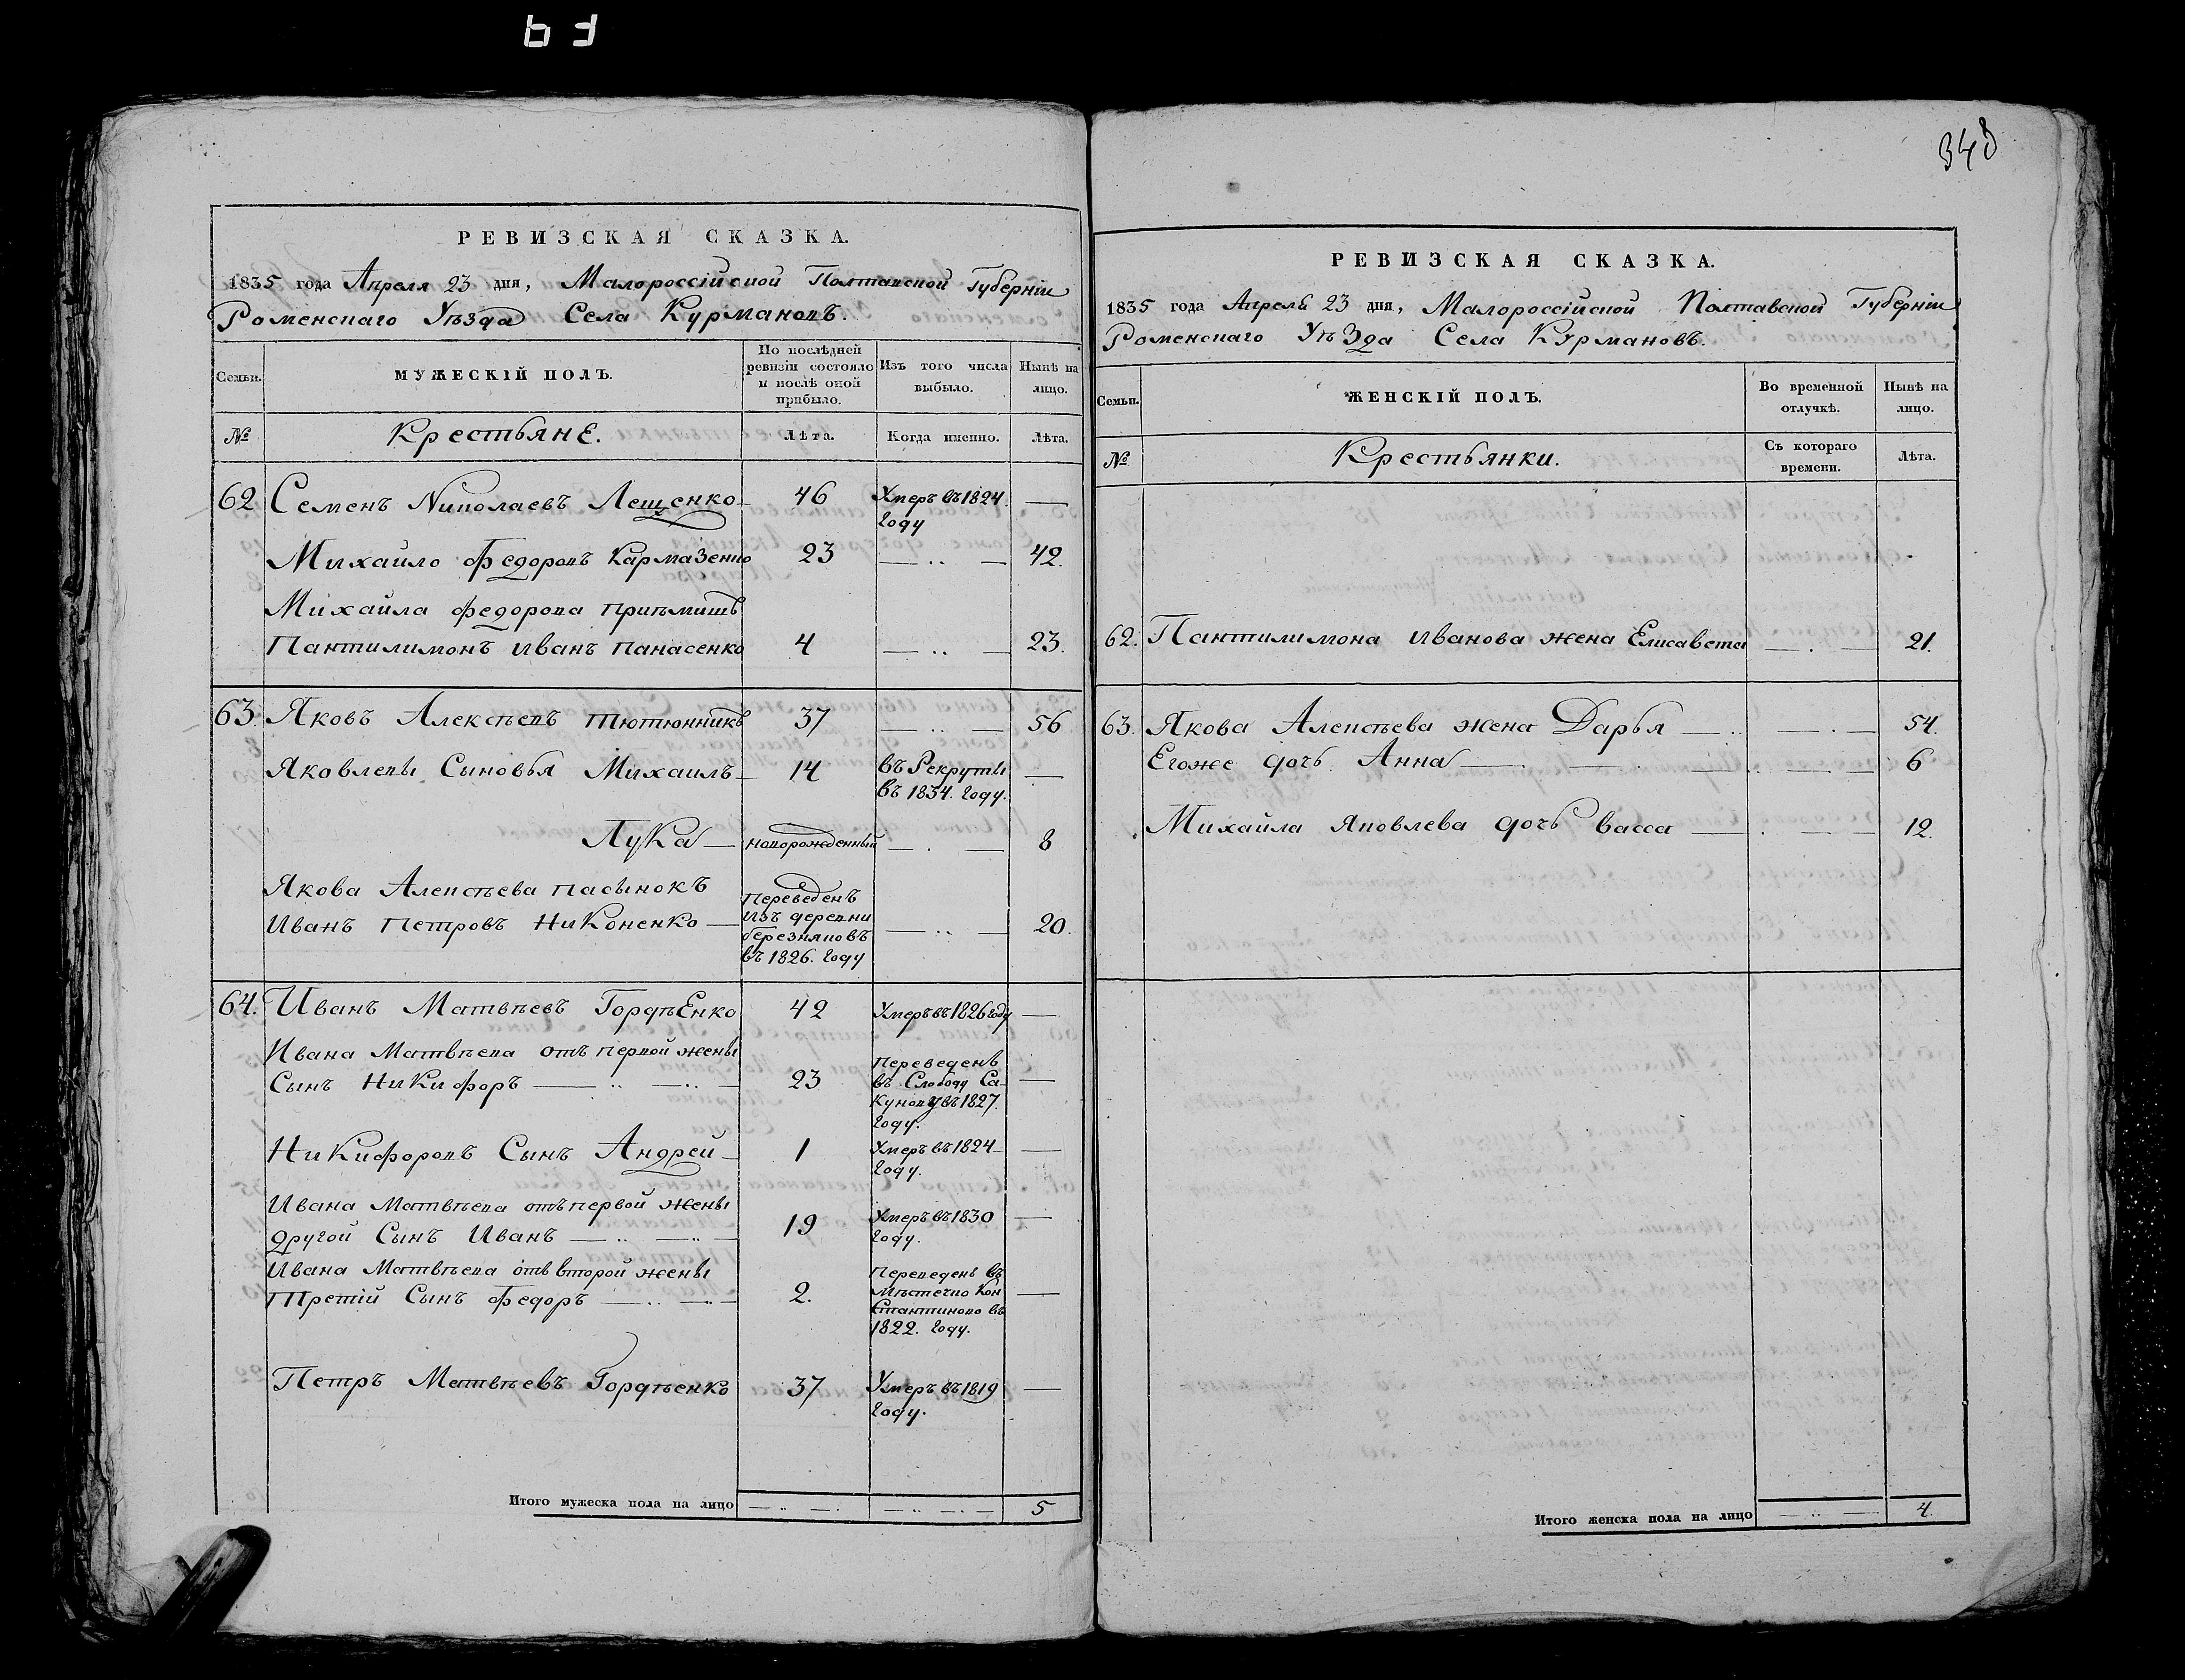 63
РЕВИЗСКАЯ СКАЗКА.
1835 года Апреля 23 дня, Малороссійской Полтавской Губерніи
Роменскаго Уѣзда Села Курмановъ.
Семьи.
МУЖЕСКІЙ ПОЛЪ.
По послѣдней
ревизіи состояло
и послѣ оной
прибыло.
Изъ того числа
выбыло.
Нынѣ на
лицо.
№
Крестьяне.
Лѣта.
Когда именно.
Лѣта.
62 Семенъ Николаевъ Лещенко 46 Умеръ въ 1824. —
году
Михайло Федоровъ Кармазенко 23 — ·· — 42.
Михайла Федорова приѣмишъ
Пантилимонъ Иванъ Панасенко 4 — ·· — 23.
63. Яковъ Алексѣевъ Тютюнникъ 37 — ·· — 56
Яковлевы Сыновья Михаилъ 14 въ Рекруты —
въ 1834. году.
Лука — новорожденный — · — 8
Якова Алексѣева пасынокъ
Иванъ Петровъ Никоненко — Переведенъ
изъ деревни
березняковъ
въ 1826. году — ·· — 20.
64. Иванъ Матвѣевъ Гордѣенко 42 Умеръ въ 1826 году —
Ивана Матвѣева отъ первой жены
Сынъ Никифоръ — ·· — ·· — 23 Переведенъ
въ Слободу Са-
куновувъ 1827.
году. —
Никифоровъ Сынъ Андрей — 1 Умеръ въ 1824 —
году.
Ивана Матвѣева отъ первой жены
другой Сынъ Иванъ — ·· — ·· — 19 Умеръ въ 1830 —
году.
Ивана Матвѣева отъ второй жены
Третій Сынъ Федоръ — ·· — ·· — 2. Переведенъ въ
Мѣстечко Кон
стантиново въ
1822. году. —
Петръ Матвѣевъ Гордѣенко 37 Умеръ въ 1819 —
году.
Итого мужеска пола на лицо — ·· — · — ·· — · — 5
343
РЕВИЗСКАЯ СКАЗКА.
1835 года Апреля 23 дня, Малороссійской Полтавской Губерніи
Роменскаго Уѣзда Села Курмановъ.
Семьи.
ЖЕНСКІЙ ПОЛЪ.
Во временной
отлучкѣ.
Нынѣ на
лицо.
№
Крестьянки.
Съ котораго
времени.
Лѣта.
62. Пантилимона Иванова жена Елисавета — · — 21.
63. Якова Алексѣева жена Дарья — ·· — · — 54.
Егоже дочь Анна — · — · — 6
Михайла Яковлева дочь Васса — · — 12.
Итого женска пола на лицо — ·· — 4.